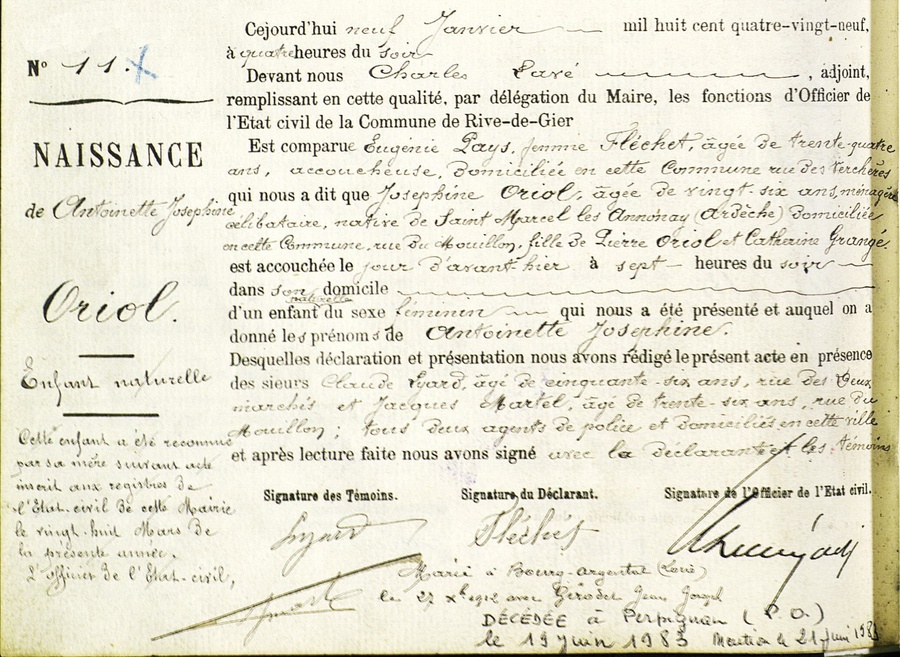 Nº 11.
NAISSANCE
de Antoinette Josephine
Oriol.
Enfant naturelle
Cette enfant a été reconnue
par sa mère suivant acte
inscrit aux registres de
l'Etat-civil de cette Mairie
le vingt-huit Mars de
la présente année.
L'officier de l'Etat-civil,
Cejourd'hui neuf Janvier mil huit cent quatre-vingt-neuf,
à quatre heures du soir
Devant nous Charles , adjoint,
remplissant en cette qualité, par délégation du Maire, les fonctions d'Officier de
l'Etat civil de la Commune de Rive-de-Gier
Est comparue Eugénie Pays, femme Fléchet, âgée de trente-quatre
ans, accoucheuse, domiciliée en cette Commune rue des Verchères
qui nous a dit que Josephine Oriol, âgée de vingt-six ans, ménagère
célibataire, native de Saint Marcel les Annonay (Ardèche) domiciliée
en cette Commune, rue du Mouillon, fille de Pierre Oriol et Catherine Grangé.
est accouchée le jour d'avant-hier à sept heures du soir
dans son domicile
naturelle
d'un enfant du sexe féminin qui nous a été présenté et auquel on a
donné les prénoms de Antoinette Josephine.
Desquelles déclaration et présentation nous avons rédigé le présent acte en présence
des sieurs Claude Eyard, âgé de cinquante-six ans, rue des Deux
marchés et Jacques Martel, âgé de trente-six ans, rue du
Mouillon ; tous deux agents de police et domiciliés en cette ville
et après lecture faite nous avons signé avec la déclarante et les témoins
Signature des Témoins. Signature du Déclarant. Signature de l'Officier de l'Etat civil.
Fléchet
Marié à Bourg-Argental (Loire)
le 27 Xbre 1912 avec Girodet Jean Joseph
DÉCÉDÉE à Perpignan (P.O.)
le 19 juin 1983 Mention le 21 juin